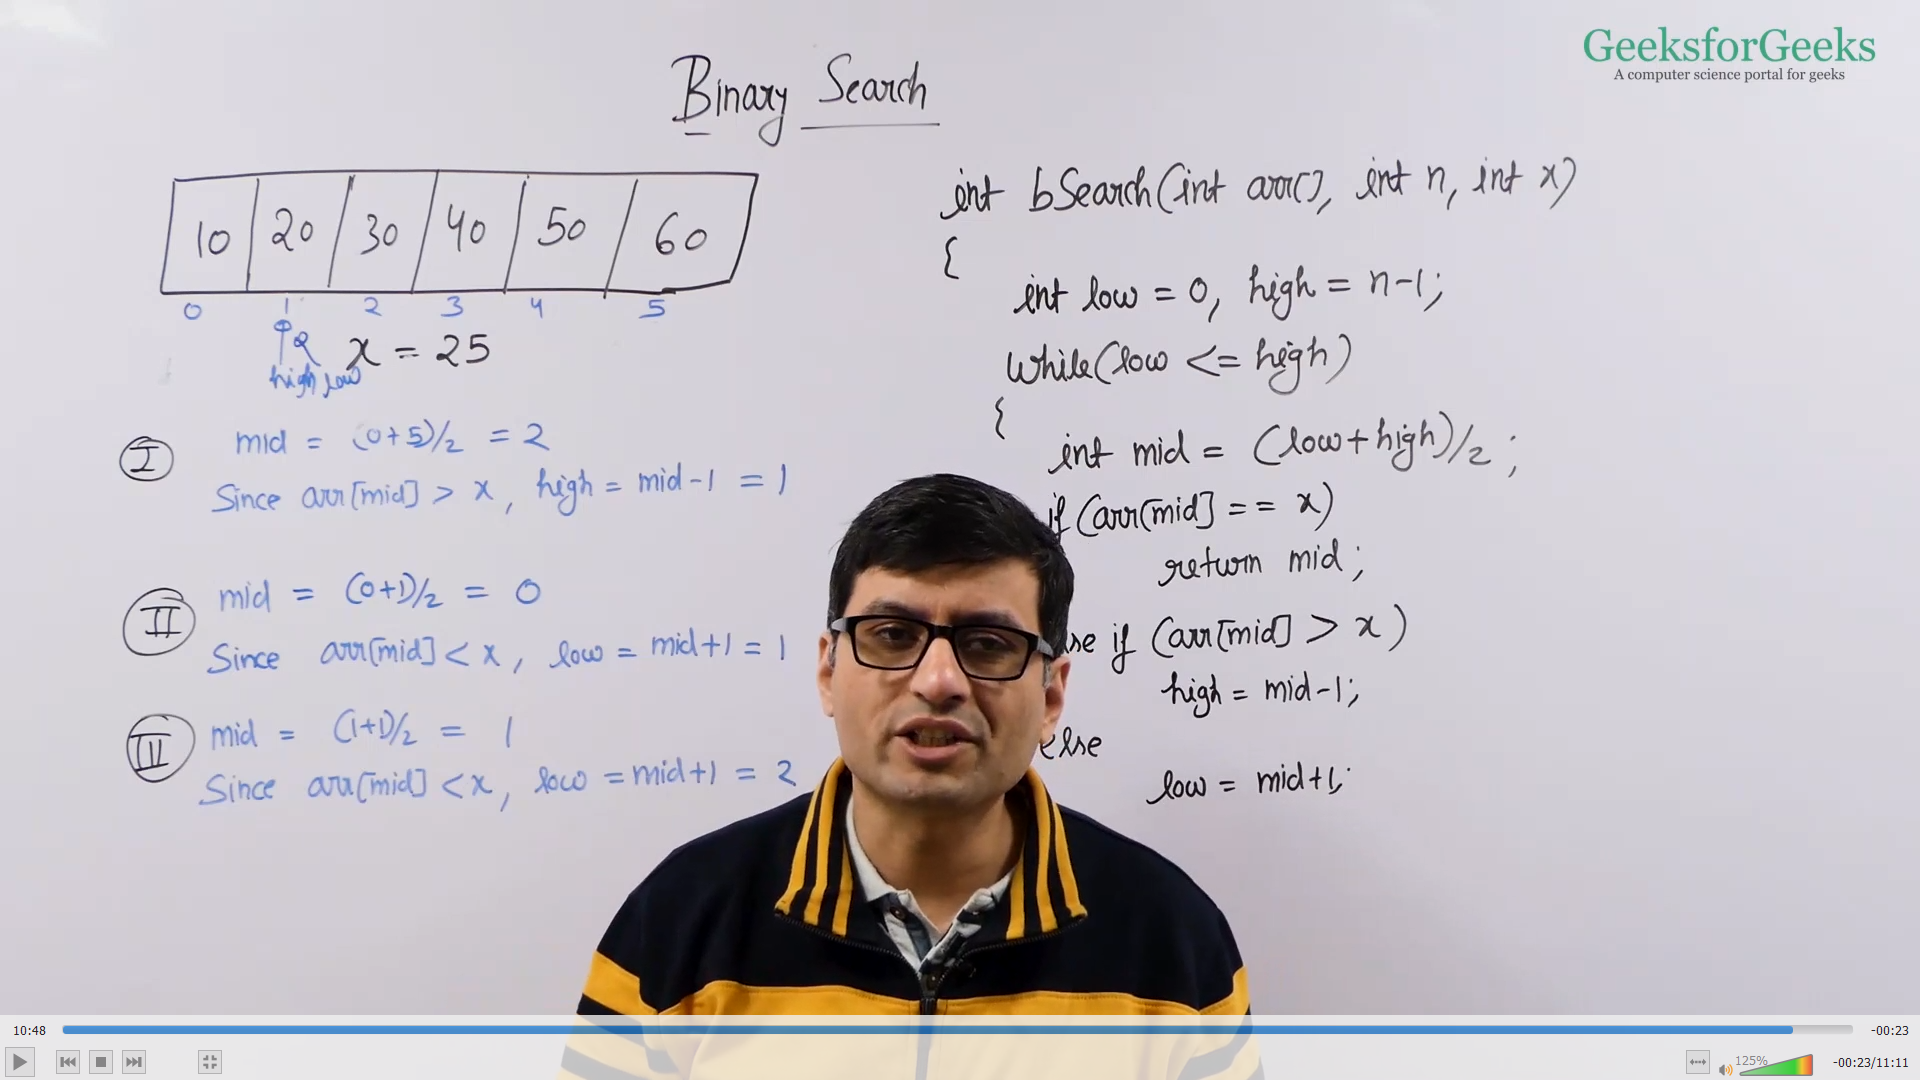 GeeksforGeeks
A computer science portal for geeks
Binary Search
10 20 30 40 50 60
0 1 2 3 4 5
high low
x = 25
I
mid = (0+5)/2 = 2
Since arr[mid] > x, high = mid-1 = 1
II
mid = (0+1)/2 = 0
Since arr[mid] < x, low = mid+1 = 1
III
mid = (1+1)/2 = 1
Since arr[mid] < x, low = mid+1 = 2
int bSearch(int arr[], int n, int x)
{
int low = 0, high = n-1;
while(low <= high)
{
int mid = (low+high)/2;
if (arr[mid] == x)
return mid;
se if (arr[mid] > x)
high = mid-1;
else
low = mid+1;
10:48
-00:23
125%
-00:23/11:11